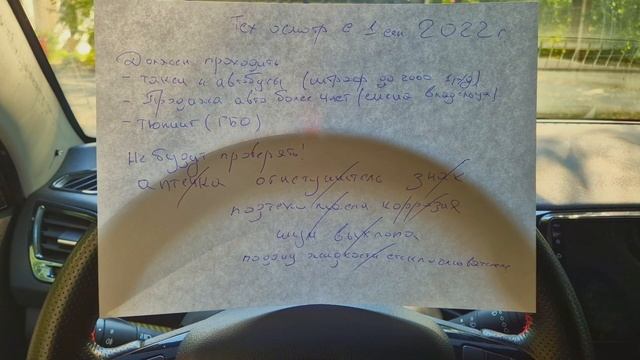 Тех осмотр с 1 сен 2022 г
Должен проходить
- такси и автобусы (штраф до 2000 руб)
- Продажа авто более 4 лет (смена владельца)
- Тюнинг (ГБО)
Не будут проверять!
аптечка огнетушитель знак
подтеки масла коррозия
шум выхлопа
подачу жидкости стеклоомывателя